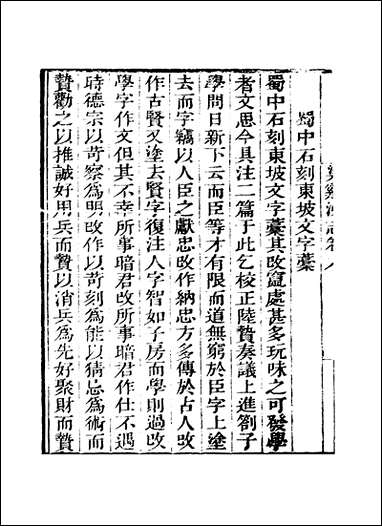 梁谿漫志卷八
蜀中石刻東坡文字藳
蜀中石刻東坡文字藳其改竄處甚多玩味之可發學
者文思今具注二篇于此乞校正陸贄奏議上進劄子
學問日新下云而臣等才有限而道無窮於臣字上塗
去而字竊以人臣之獻忠改作納忠方多傳於占人改
作古賢又塗去賢字復注人字智如子房而學則過改
學字作文但其不幸所事暗君改所事暗君作仕不遇
時德宗以苛察為明改作以苛刻為能以猜忌為術而
贄勸之以推誠好用兵而贄以消兵為先好聚財而贄